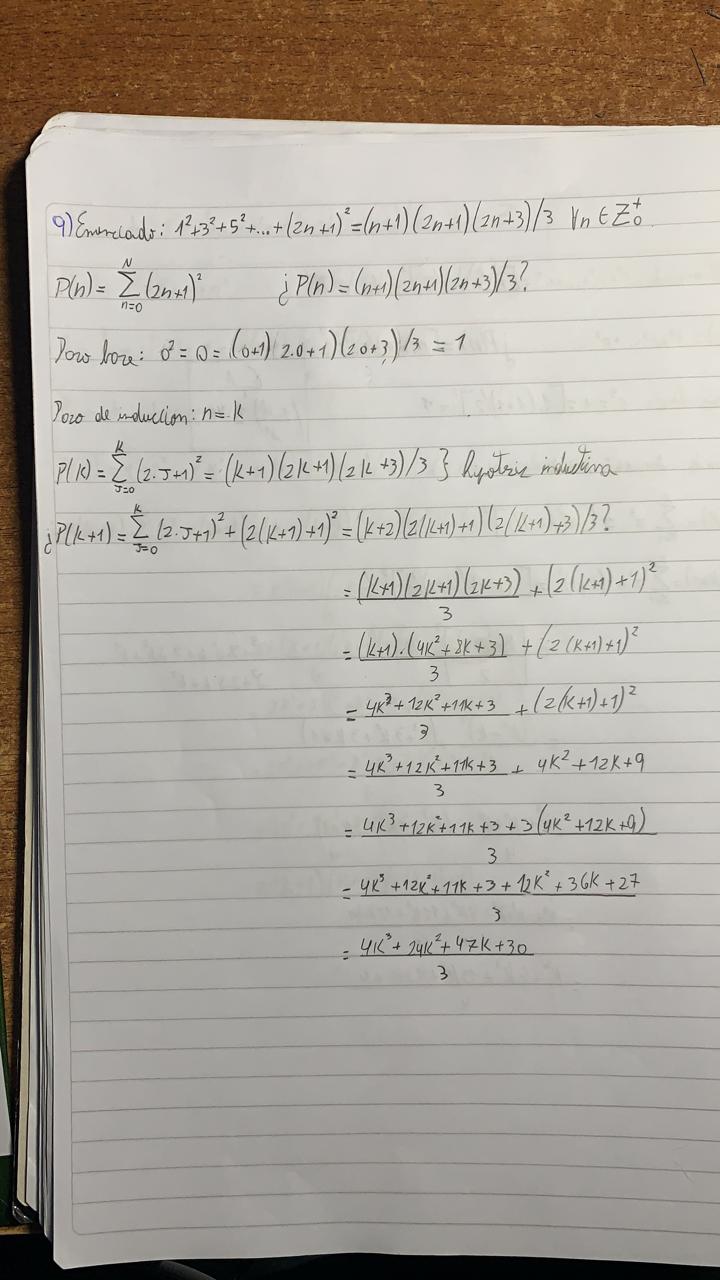 9) Enunciado: 1²+3²+5²+...+(2n+1)²=(n+1)(2n+1)(2n+3)/3 ∀n∈Z₀⁺
P(n)= ∑_{n=0}^{N} (2n+1)² ¿P(n)=(n+1)(2n+1)(2n+3)/3?
Paso base: 0²=0=(0+1) 2.0+1)(2 0+3)/3 = 1
Paso de induccion: n=k
P(k)= ∑_{J=0}^{K} (2.J+1)²=(k+1)(2k+1)(2k+3)/3 } Hipotesis inductiva
¿P(k+1)= ∑_{J=0}^{K} (2.J+1)²+(2(k+1)+1)²=(k+2)(2(k+1)+1)(2(k+1)+3)/3?
= (k+1)(2k+1)(2k+3)/3 + (2(k+1)+1)²
= (k+1).(4k²+8k+3)/3 + (2(k+1)+1)²
= 4k³+12k²+11k+3/3 + (2(k+1)+1)²
= 4k³+12k²+11k+3/3 + 4k²+12k+9
= 4k³+12k²+11k+3+3(4k²+12k+9)/3
= 4k³+12k²+11k+3+12k²+36k+27/3
= 4k³+24k²+47k+30/3